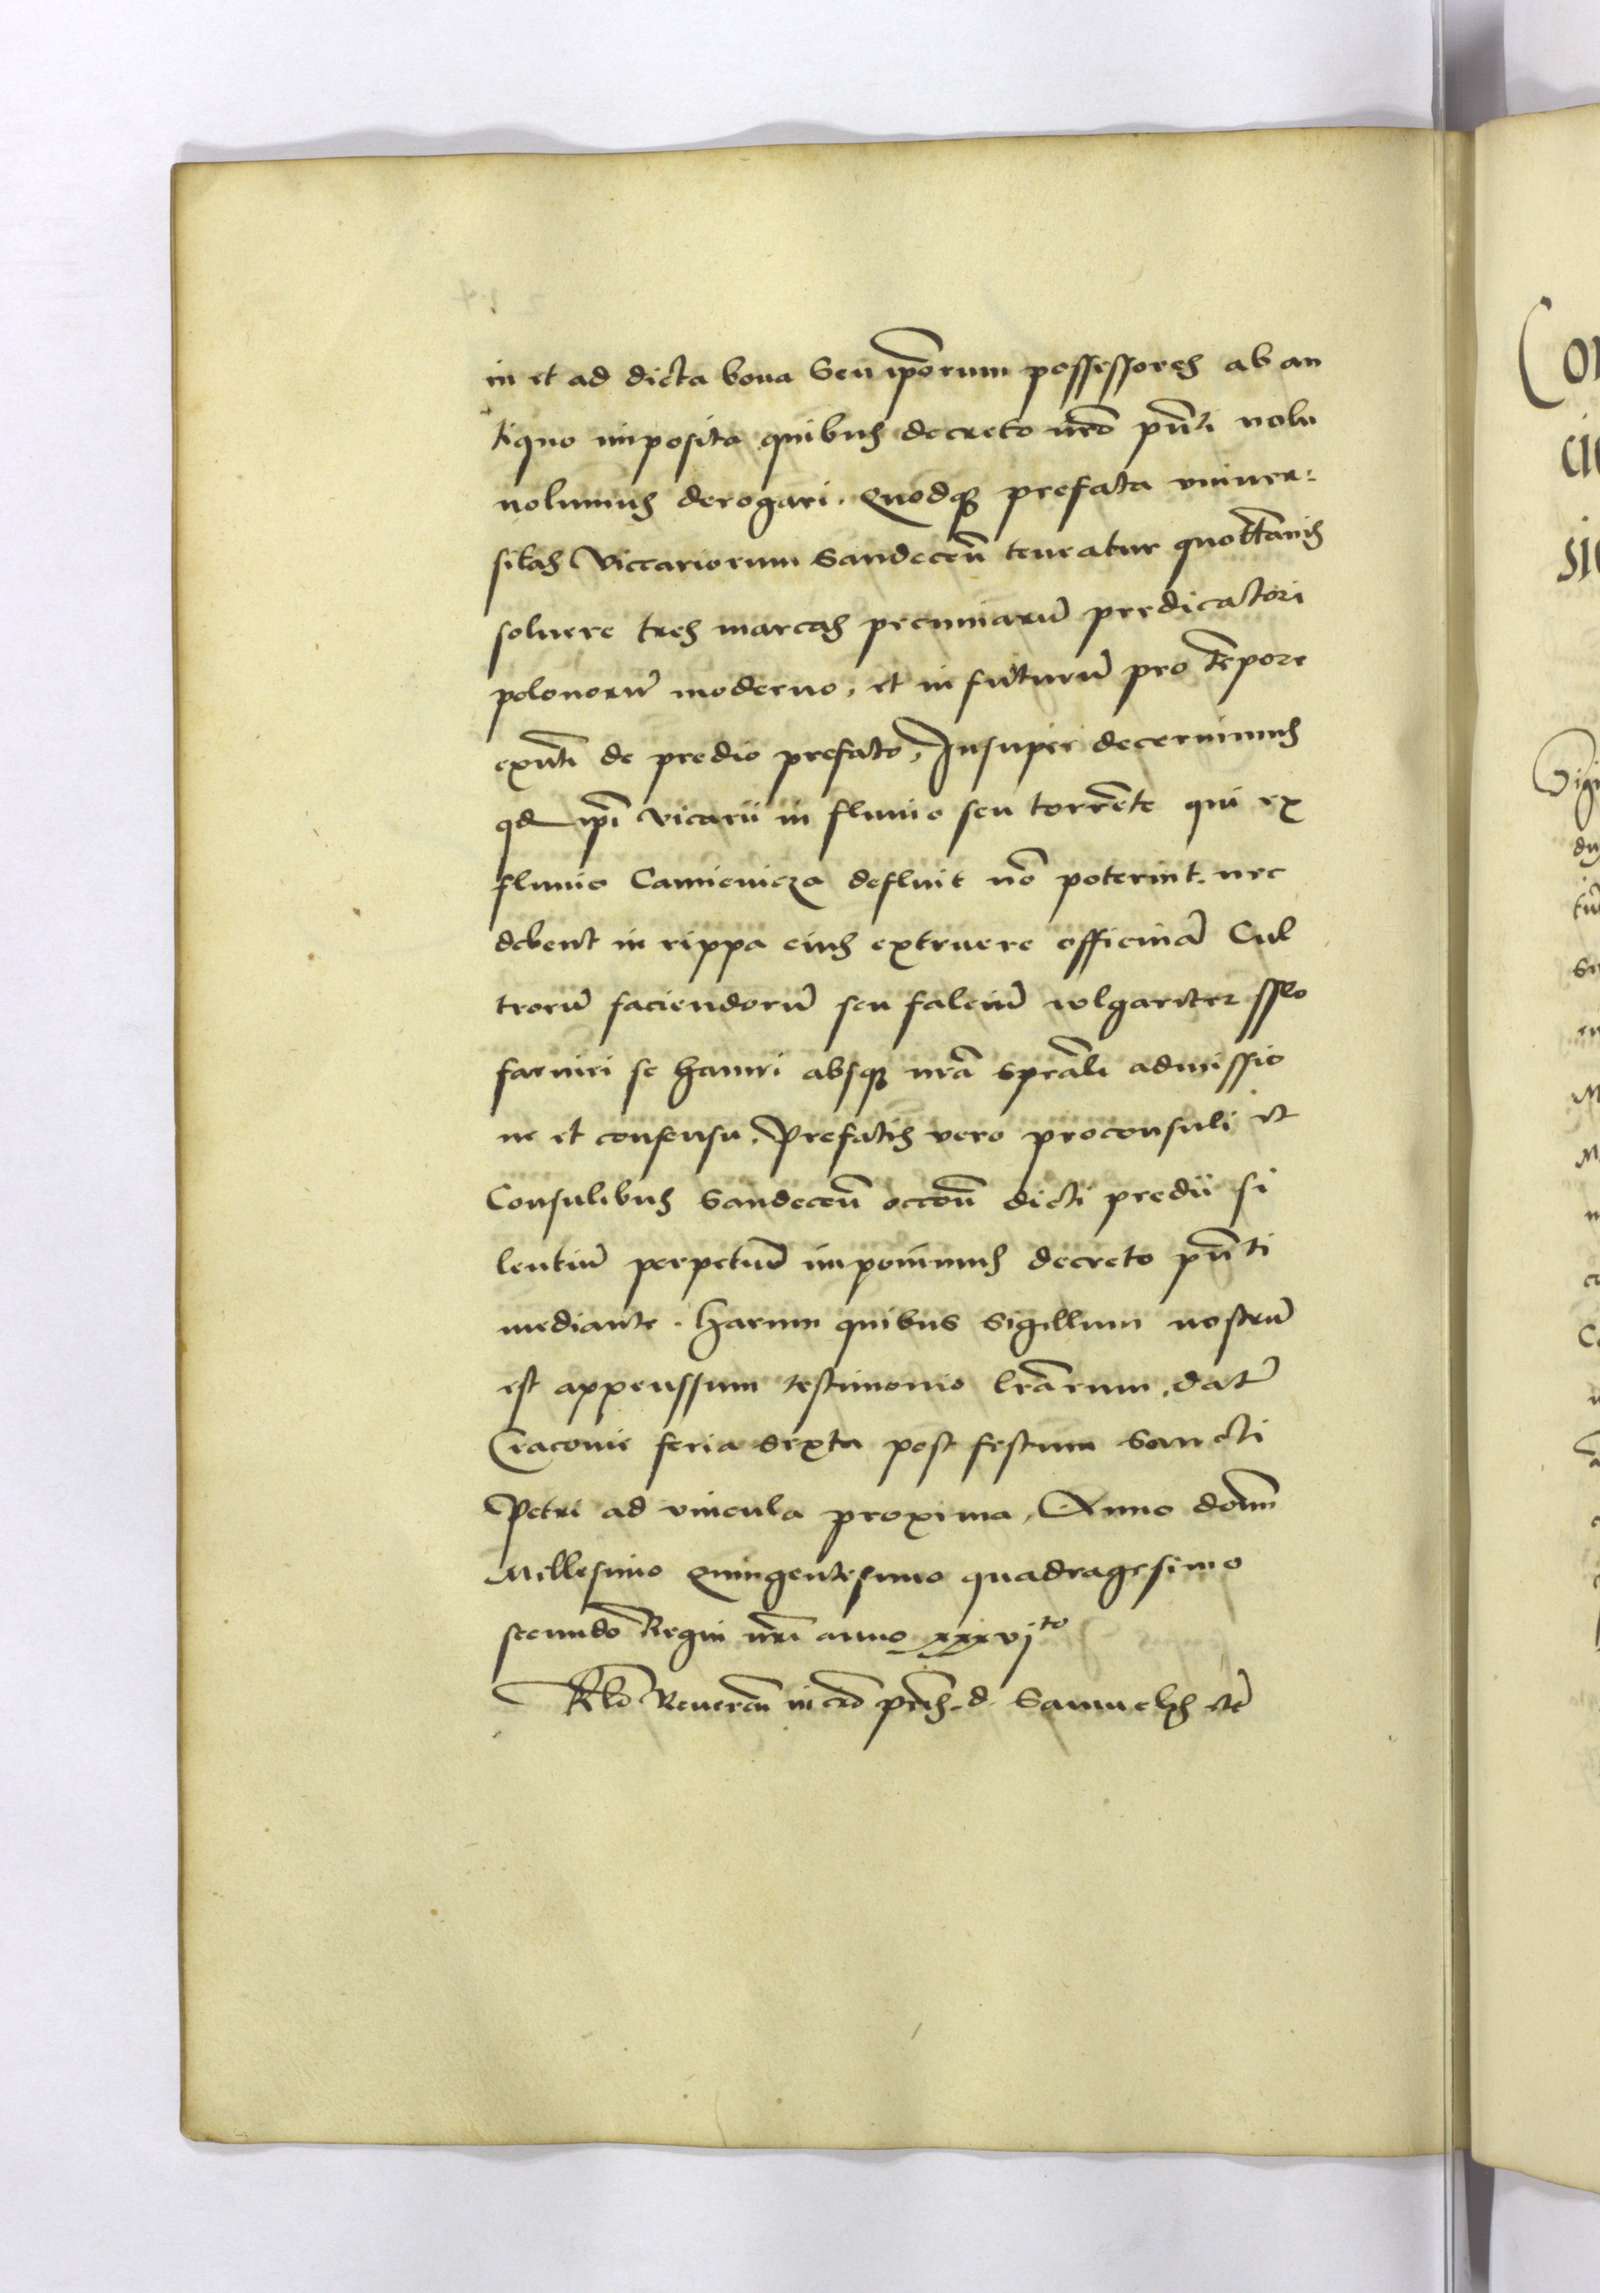 in et ad dicta bona Seu ip̄orum possessores ab an
tiquo imposita quibus decreto nr̄o pn̄ti nolu
nolumus derogari. Quodq̨ prefata vniuer:
sitas Viccariorum Sandecen̄ teneatur quottānis
soluere tres marcas pecuniarū predicatori
polonorū moderno, et in futurū pro tēpore
exn̄ti de predio prefato, Insuper decernimus
qd ip̄i vicarii in fluuio seu torrēte qui ex
fluuio Camienicza defluit nō poterint nec
debent in rippa eius extruere officinā Cul
trorū faciendorū seu falciū wlgariter
absq̨ nrā spēāli admissio
ne et consensu. Prefatis vero proconsuli et
Consulibus Sandecen̄ occōn̄ dicti predii si
lentiū perpetuū imponimus decreto pn̄ti
mediante. Harum quibus Sigillum nostrū
est appenssum testimonio lr̄arum, datū
Cracouie feria sexta post festum Sancti
Petri ad vincula proxima, Anno domī
Millesimo Quingentesimo quadragesimo
secundo Regni nr̄i anno xxxvjto
Rlō Reueren̄ in cr̄o pr̄is d Samuelis etc̄
Co
ci
si